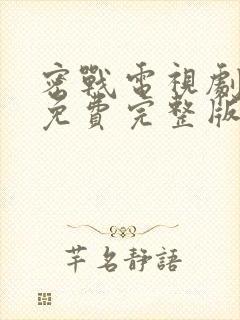 密戰電視劇
免費完整版
芊名靜語